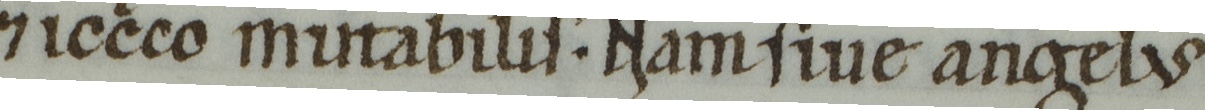 ⁊ iccco mutabilis. Nam siue angelus